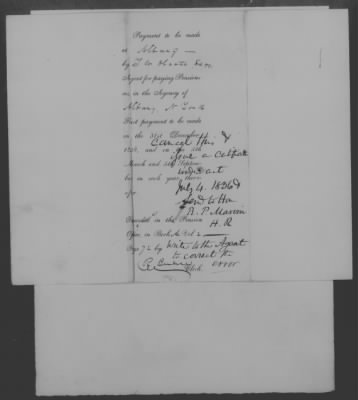 Payment to be made
at Albany —
by T. W. Olcott Esqr
Agent for paying Pensions
in the Agency of
Albany N York
First payment to be made
on the 31st December
Cancel this &
and on the 4th
give a certificate
March and 4th Septem-
under act
ber in each year there-
July 4. 1836 &
after
send to Hon
R. P. Marvin
Recorded in the Pension
H. R
Office, in Book A Vol 2
Page 72 by
Write to the Agent
to correct the
Clerk. error